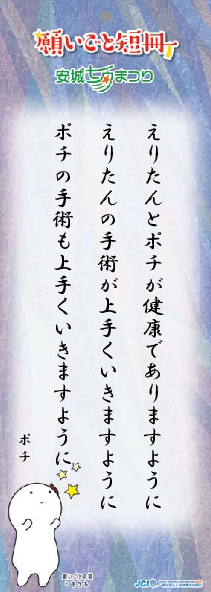 願いごと短冊
安城七夕まつり
えりたんとポチが健康でありますように
えりたんの手術が上手くいきますように
ポチの手術も上手くいきますように
ポチ
JCI